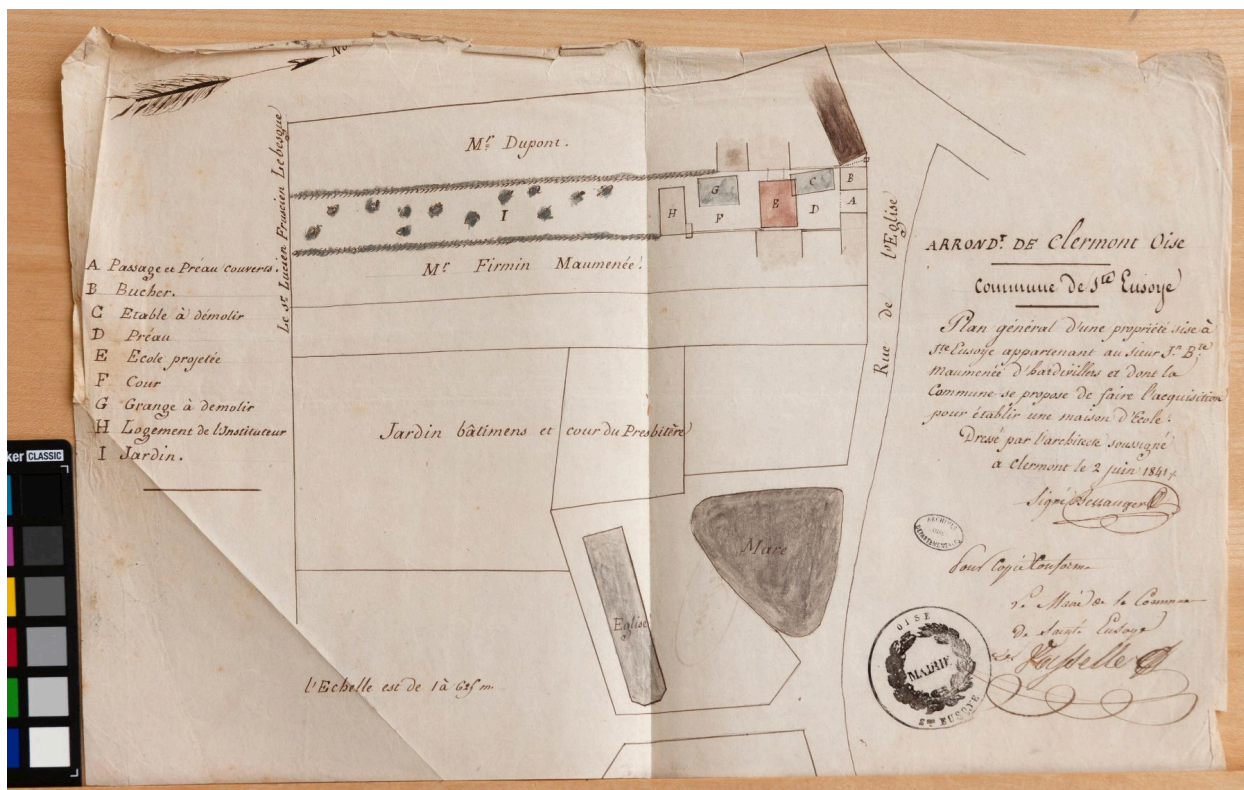 No
Mr Dupont.
Le sr. Lucien Pruscien Lebesque
I
H
G
F
E
C
D
B
A
Mr Firmin Maumenée.
Rue de l'Eglise
A Passage et Préau couverts.
B Bucher.
C Etable à démolir
D Préau
E Ecole projetée
F Cour
G Grange à demolir
H Logement de l'Instituteur
I Jardin.
Jardin bâtimens et cour du Presbitère
Mare
Eglise
l'Echelle est de 1 à
ARRONDt. DE Clermont Oise
Commune de Ste Eusoye
Plan général d'une propriété sise à
Ste Eusoye appartenant au sieur Jn. Bte.
maumenée d'hardivillers et dont la
Commune se propose de faire l'acquisition
pour établir une maison d'Ecole.
Dressé par l'architecte soussigné
a Clermont le 2 juin 1841
signé
ARCHIVES
DÉPARTEMENTALES
Pour Copie Conforme
Le Maire de la Commune
de Sainte Eusoye
OISE
MAIRIE
STE EUSOYE
ker CLASSIC